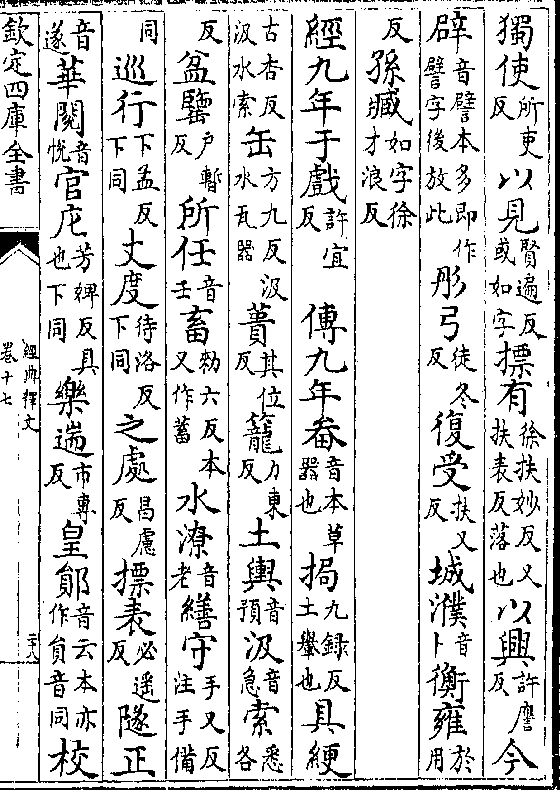 獨使所吏反以見賢遍反或如字摽有徐扶妙反又扶表反落也以興許譍反今
辟音譬本多即作譬字後放此彤弓徒冬反復受扶又反城濮音卜衡雍於用
反孫臧如字徐才浪反
經九年于戲許宜反 傳九年畚音本草器也挶九錄反土轝也具綆
古杏反汲水索缶方九反汲水瓦器蕢其位反籠力東反土轝音預汲音急索悉各
反盆戶暫反所任音壬畜勑六反本又作蓄水潦音老繕守手又反注手備
同巡行下孟反下同丈度待洛反下同之處昌慮反摽表必遥反隧正
音遂華閱音悅官庀芳婢反具也下同樂遄市專反皇鄖音云本亦作員音同校
欽定四庫全書
經典釋文
卷十七